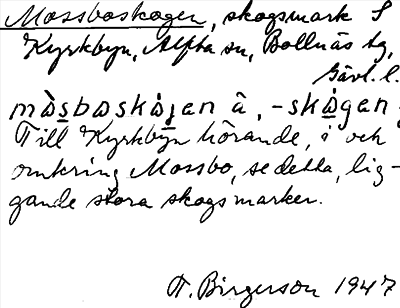 Mossboskogen, skogsmark S
Kyrkbyn, Alfta sn, Bollnäs tg,
Gävl. l.
må̀sboskå̀gen å, -skå̀gen
Till Kyrkbyn hörande, i och
omkring Mossbo, se detta, lig-
gande stora skogsmarker.
T. Birgerson 1947